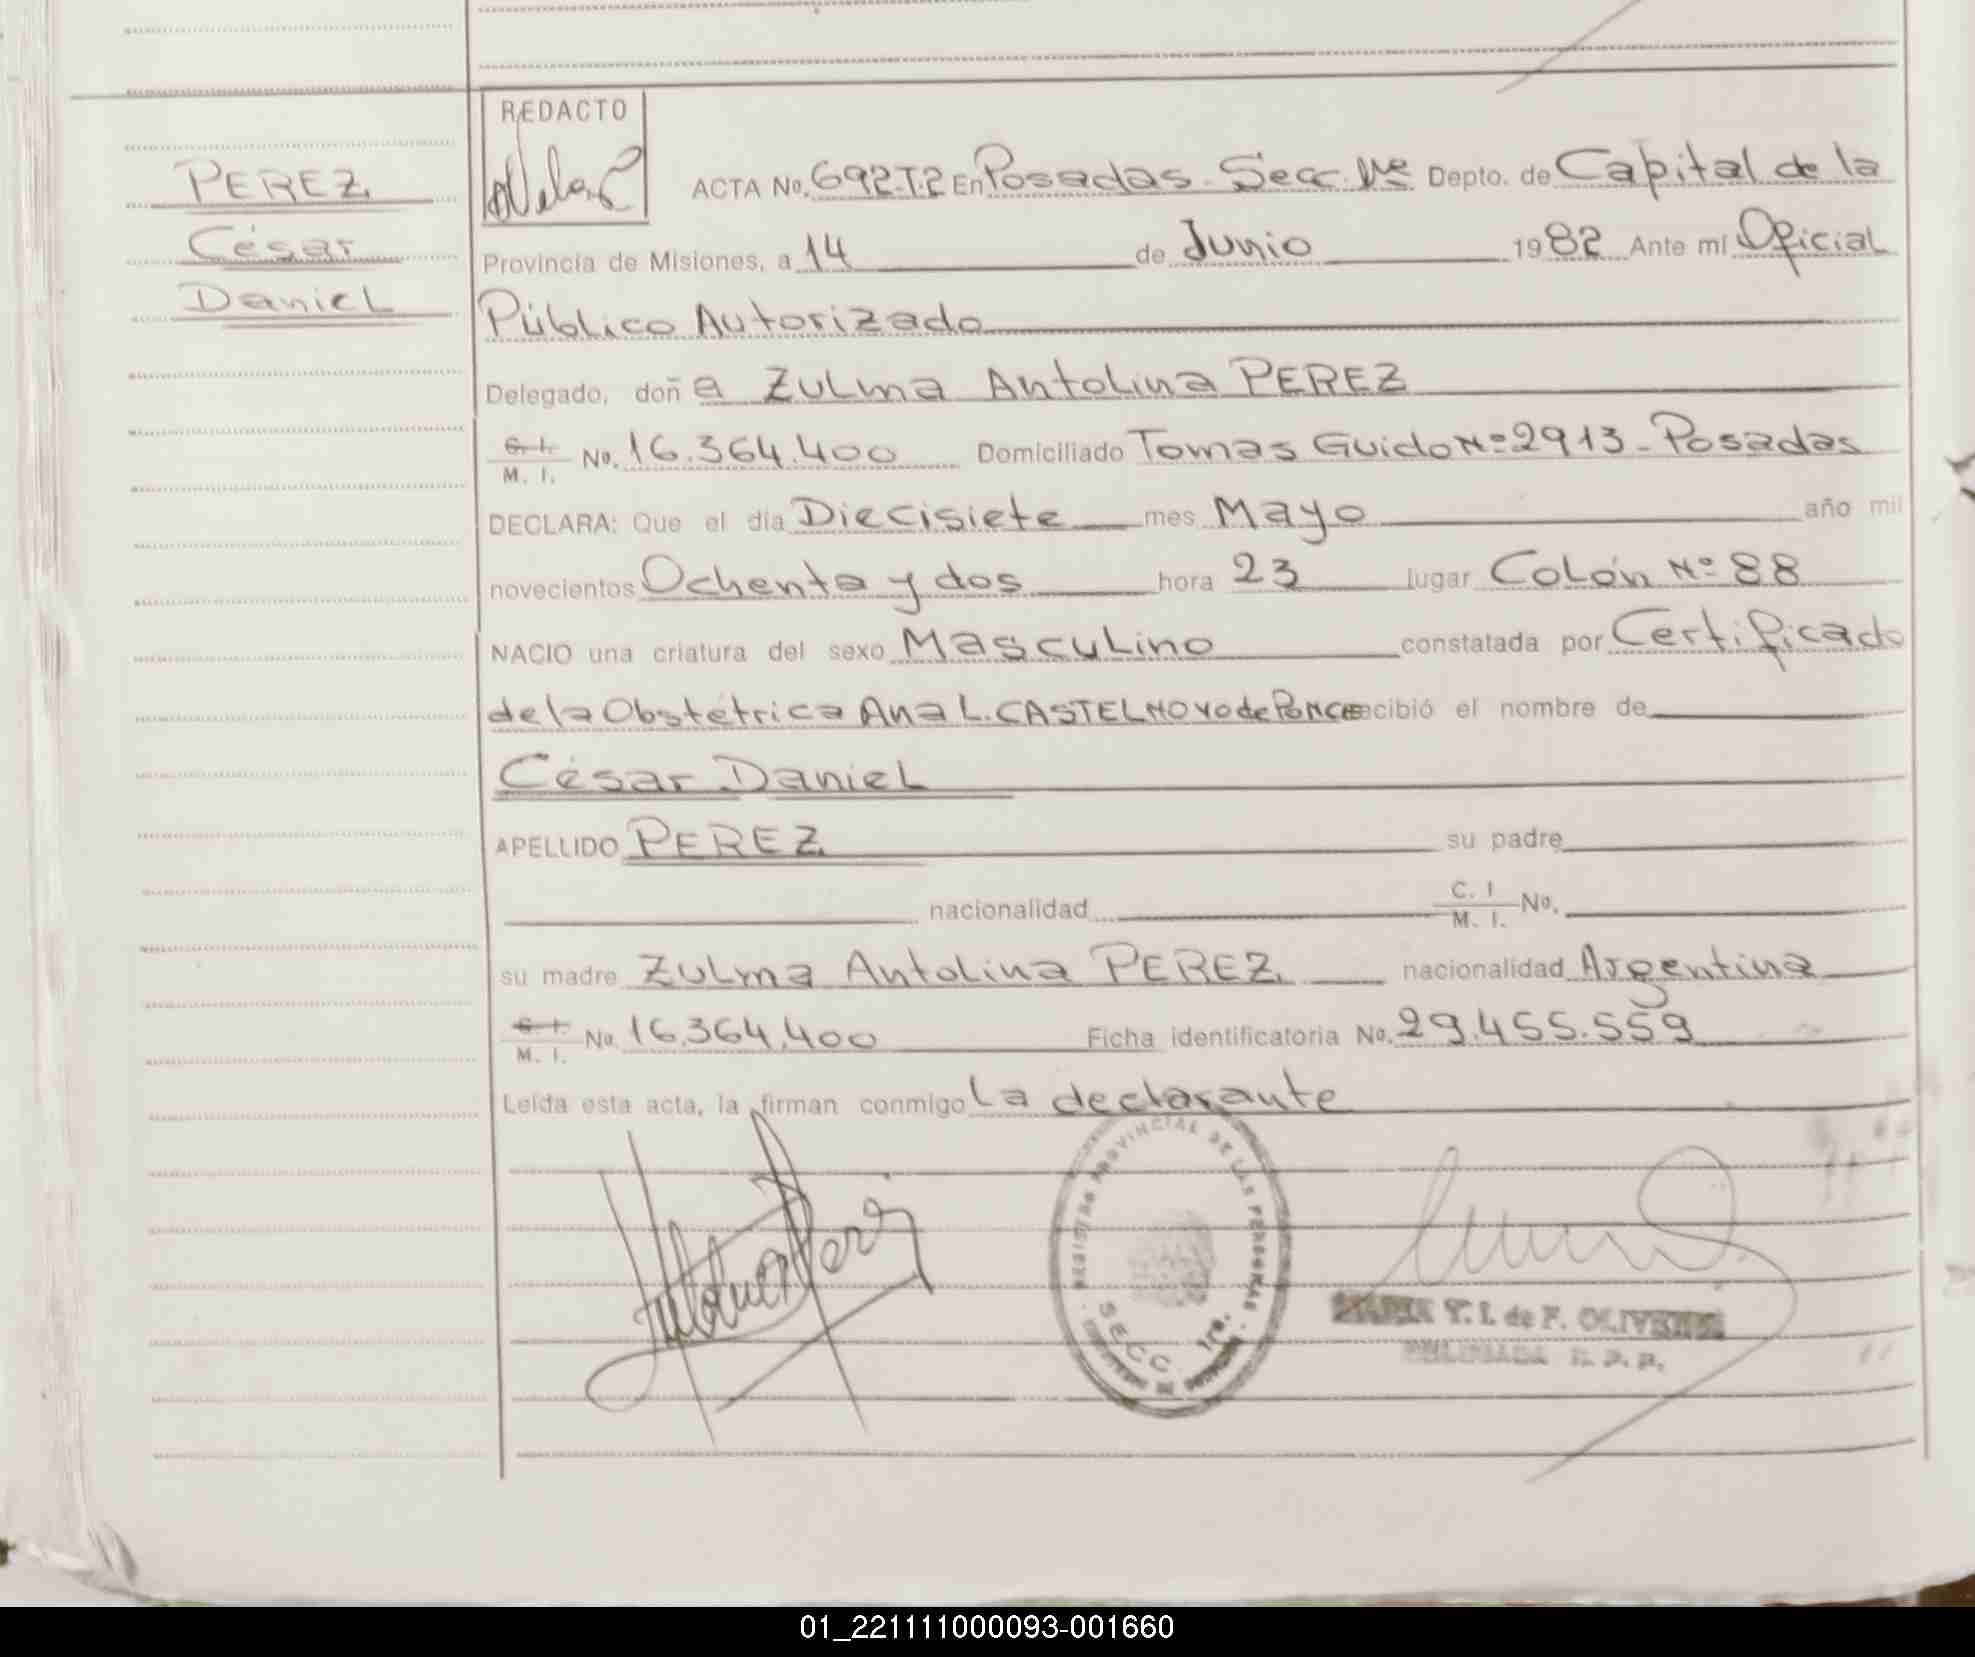 REDACTO
PEREZ
César
Daniel
ACTA No. 692.T.2 En Posadas. Secc. 1ra Depto. de Capital de la
Provincia de Misiones, a 14 de Junio 1982 Ante mí Oficial
Público Autorizado
Delegado, doña Zulma Antolina PEREZ
C. I. M. I. No. 16.364.400 Domiciliado Tomas Guido Nº 2913 - Posadas
DECLARA: Que el día Diecisiete mes Mayo año mil
novecientos Ochenta y dos hora 23 lugar Colón Nº 88
NACIO una criatura del sexo Masculino constatada por Certificado
de la Obstétrica Ana L. CASTELNOVO de PONCE recibió el nombre de
César Daniel
APELLIDO PEREZ su padre
nacionalidad C. I M. I. No.
su madre Zulma Antolina PEREZ nacionalidad Argentina
C. I. M. I. No. 16.364.400 Ficha identificatoria No. 29.455.559
Leída esta acta, la firman conmigo La declarante
REGISTRO PROVINCIAL DE LAS PERSONAS
SECC. 1ra.
T. I. de F. OLIVERA
01_221111000093-001660